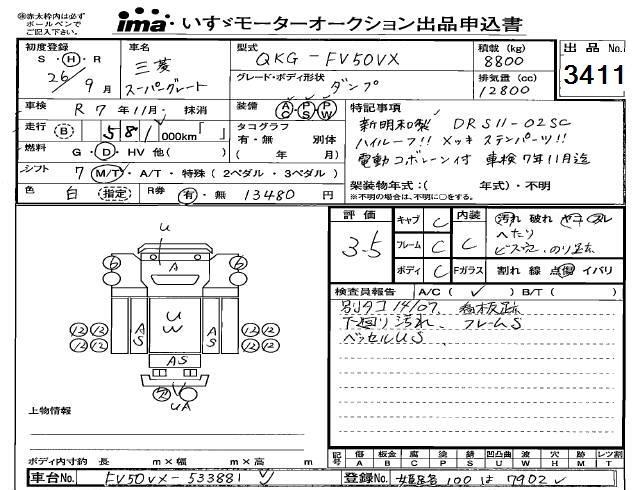 ㊟赤太枠内は必ず
ボールペンで
ご記入下さい。
ima いすゞモーターオークション出品申込書
初度登録 S・H・R 26年 9月
車名 三菱 スーパーグレート
型式 QKG-FV50VX
グレード・ボディ形状 ダンプ
積載 (kg) 8800
排気量 (cc) 12800
出品No. 3411
車検 R 7年11月・抹消
装備 AC・PS・PW
走行 (B) 581,000km「 」
タコグラフ 有・無 別体 ( 年 月)
燃料 G・D・HV 他( )
シフト 7 M/T・A/T・特殊(2ペダル・3ペダル)
色 白 (指定)
R券 有・無 13480円
特記事項
新明和製 DRS11-02SC
ハイルーフ!! メッキ ステンパーツ!!
電動コボレーン付 車検7年11月迄
架装物年式:( 年式)・不明
※不明の場合は、不明に○をする。
評価 3.5
キャブ C
フレーム C
ボディ C
内装 C
Fガラス
汚れ 破れ ヤニ
へたり
ビス穴、のり跡
割れ 線 点傷 イバリ
検査員報告 A/C(✓) B/T( )
別タコ 14/07、 板跡
下廻り汚れ、フレームS
ベッセルUS
U
A
6
6
U
W
A
S
A
S
12 12
12 12
12 12
12 12
AS
UA
上物情報
ボディ内寸約 長 m×幅 m×高 m
記号 傷 A 板金 B 腐 C 塗 P 錆 S 凹凸曲 U 波 W 穴 H 跡 M レツ割 T
車台No. FV50VX-533881 ✓
登録No. 姫路 100 は 7902 ✓